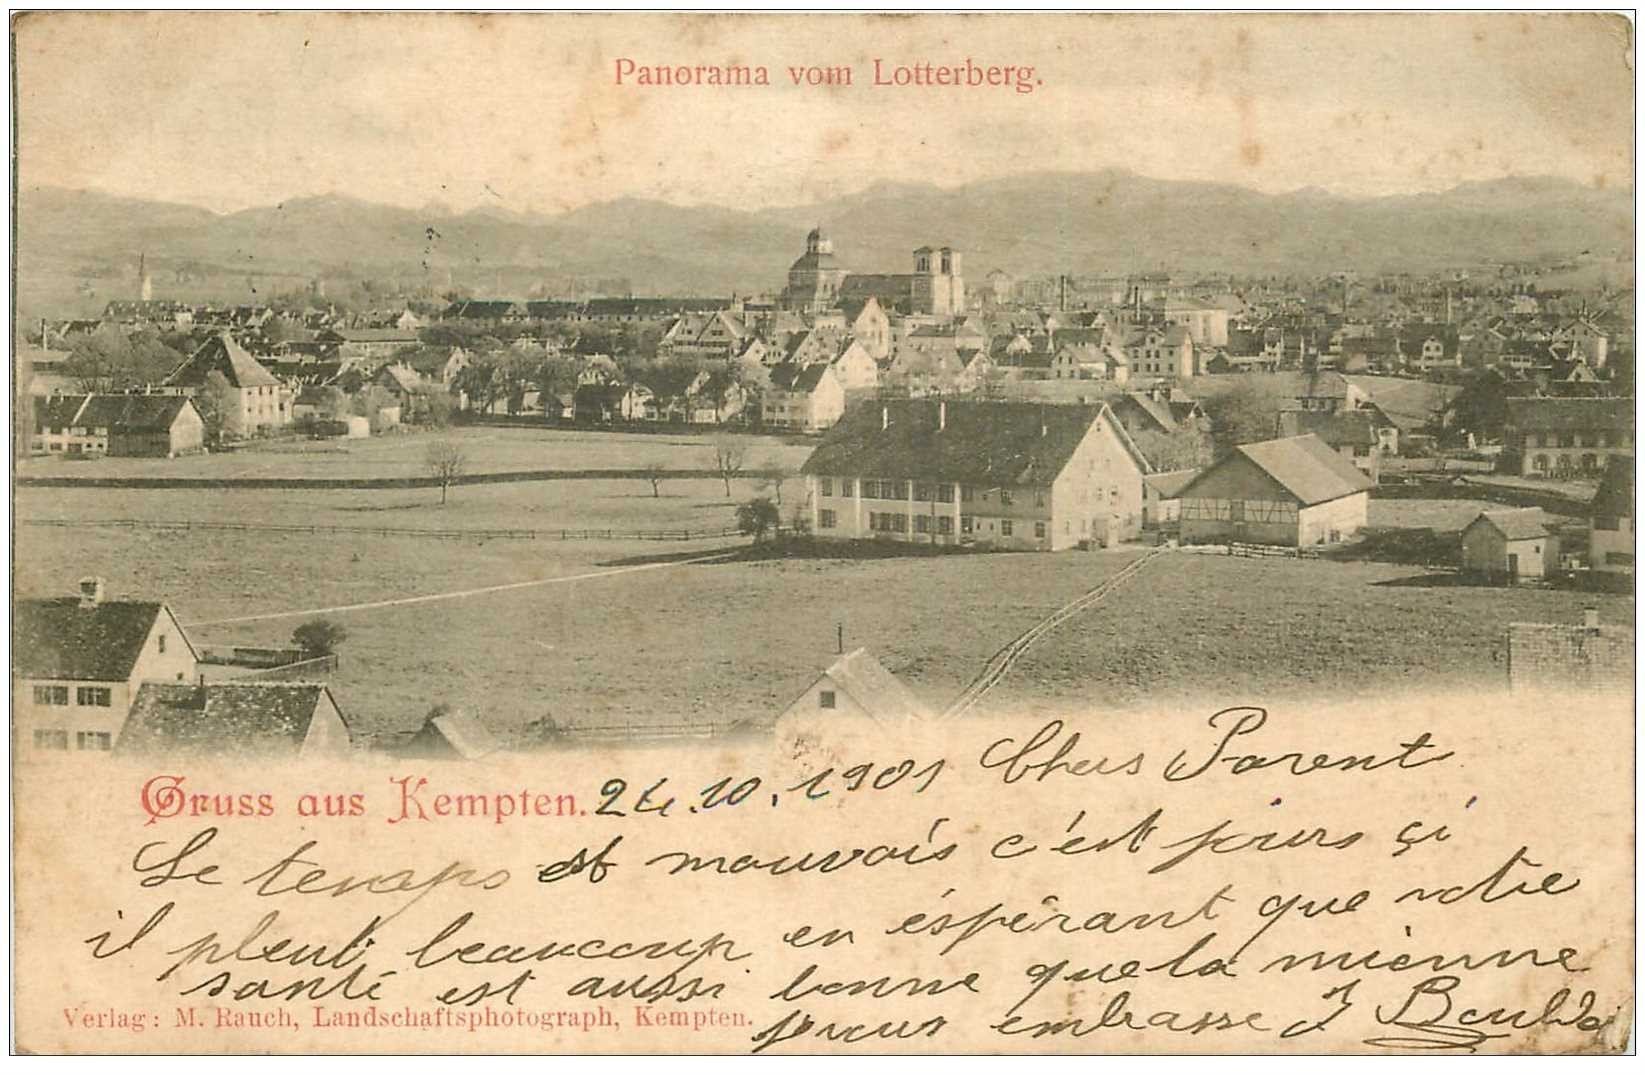 Panorama vom Lotterberg.
Gruss aus Kempten. 24.10.1901 Chers Parent
Le temps est mauvais c'est jours çi
il pleut beaucoup en éspérant que votre
santé est aussi bonne que la mienne
Verlag: M. Rauch, Landschaftsphotograph, Kempten.
vous embrasse J